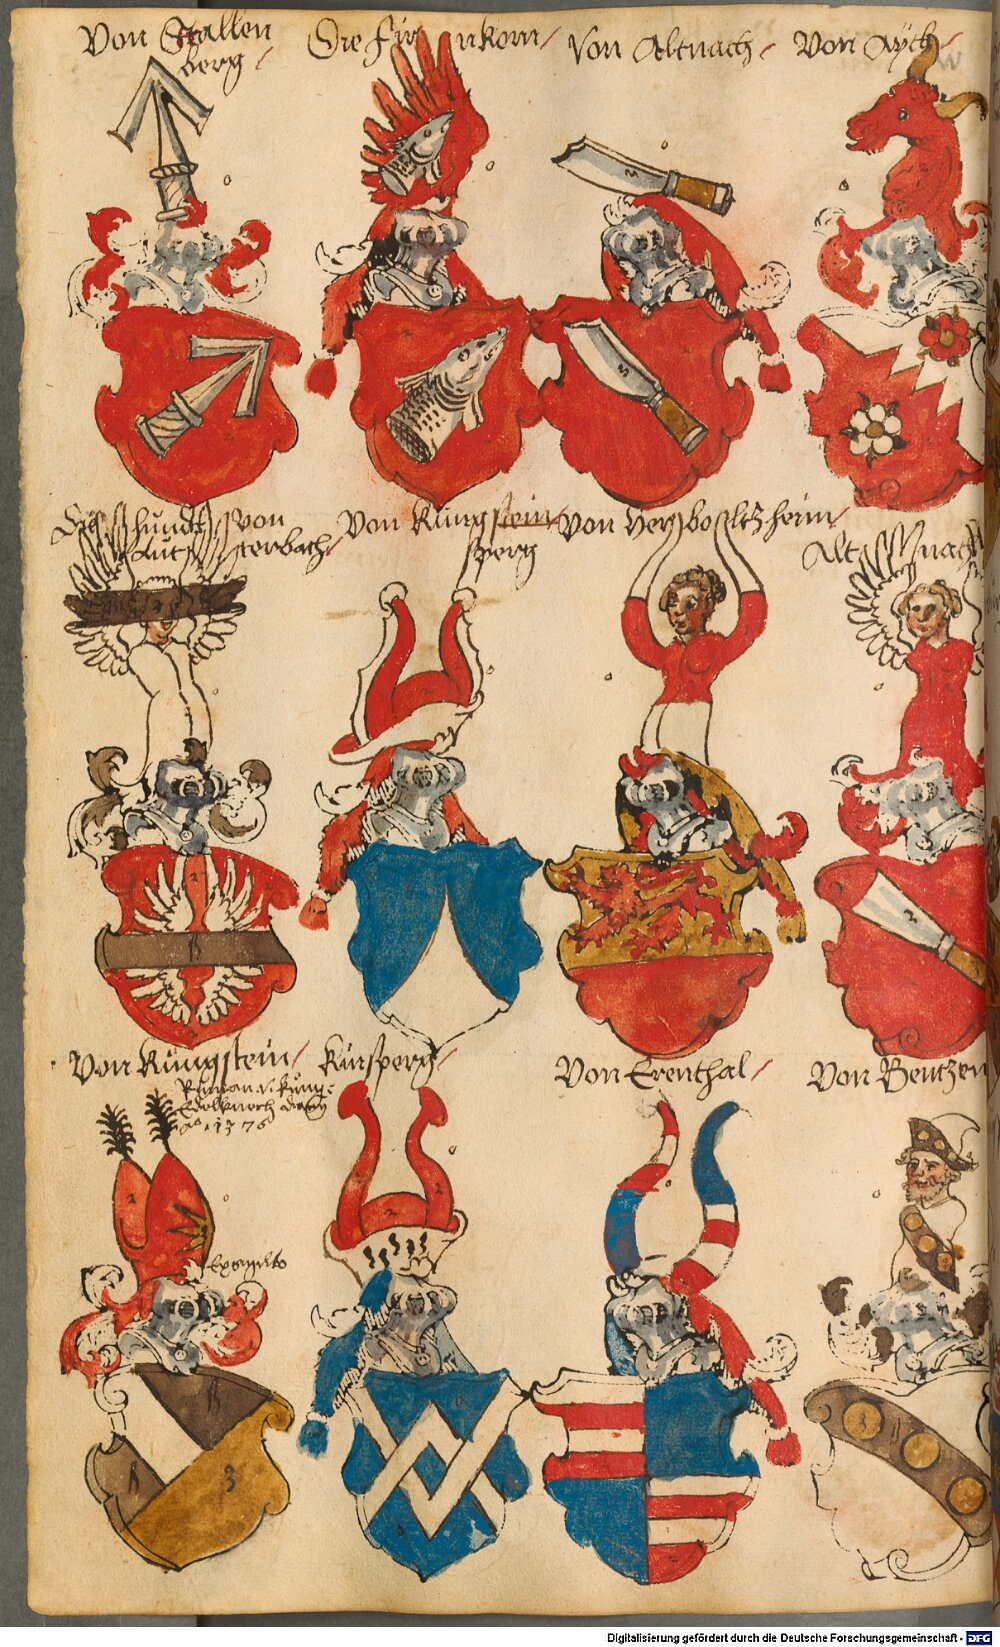 Von Stallen
berg /
Die Fir nkorn /
Von Altnach /
Von Aÿch /
Die hundt von
Laut terbach /
Von Küngstein
Perg
Von Herboltzheim /
Alt nach
Von Küngstein /
Edelknech
ao. 1376
Kürsperg /
Von Erenthal /
Von Bentzen
Digitalisierung gefördert durch die Deutsche Forschungsgemeinschaft - DFG